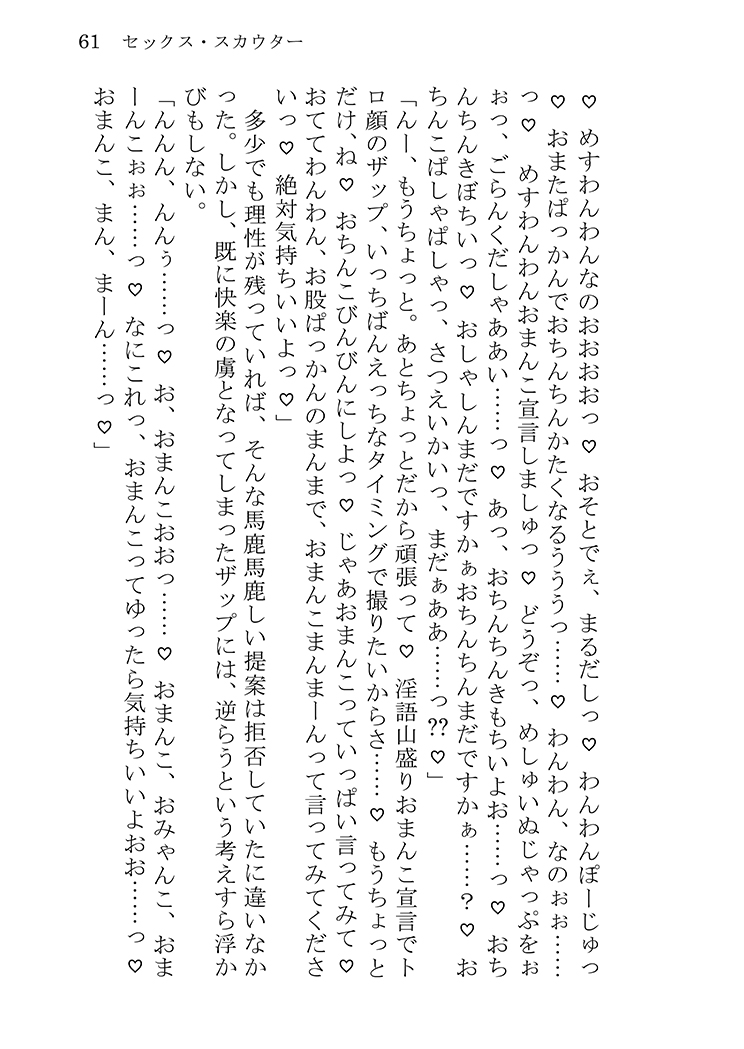 61　セックス・スカウター
♡　めすわんわんなのおおおおっ♡　おそとでぇ、まるだしっ♡　わんわんぽーじゅっ
♡　おまたぱっかんでおちんちんかたくなるうううっ……♡　わんわん、なのぉぉ……
っ♡　めすわんわんおまんこ宣言しましゅっ♡　どうぞっ、めしゅいぬじゃっぷをぉ
ぉっ、ごらんくだしゃああい……っ♡　あっ、おちんちんきもちいよお……っ♡　おち
んちんきぼちいっ♡　おしゃしんまだですかぁおちんちんまだですかぁ……？♡　お
ちんこぱしゃぱしゃっ、さつえいかいっ、まだぁああ……っ??♡」
「んー、もうちょっと。あとちょっとだから頑張って♡　淫語山盛りおまんこ宣言でト
ロ顔のザップ、いっちばんえっちなタイミングで撮りたいからさ……♡　もうちょっと
だけ、ね♡　おちんこびんびんにしよっ♡　じゃあおまんこっていっぱい言ってみて♡
おててわんわん、お股ぱっかんのまんまで、おまんこまんまーんって言ってみてくださ
いっ♡　絶対気持ちいいよっ♡」
　多少でも理性が残っていれば、そんな馬鹿馬鹿しい提案は拒否していたに違いなか
った。しかし、既に快楽の虜となってしまったザップには、逆らうという考えすら浮か
びもしない。
「んんん、んんぅ……っ♡　お、おまんこおおっ……♡　おまんこ、おみゃんこ、おま
ーんこぉぉ……っ♡　なにこれっ、おまんこってゆったら気持ちいいよおお……っ♡
おまんこ、まん、まーん……っ♡」